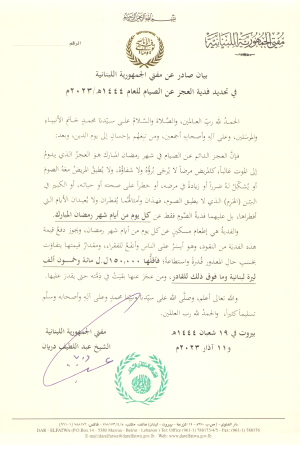 مفتي الجمهورية اللبنانية
الرقم
بيان صادر عن مفتي الجمهورية اللبنانية
في تحديد فدية العجز عن الصيام للعام ١٤٤٤هـ/٢٠٢٣م
الحمد لله رب العالمين، والصلاة والسلام على سيدنا محمد خاتم الأنبياء
والمرسلين، وعلى آله وأصحابه أجمعين، ومن تبعهم بإحسان إلى يوم الدين، وبعد:
فإن العجز الدائم عن الصيام في شهر رمضان المبارك هو العجز الذي يدوم
إلى الموت غالباً، كالمريض مرضاً لا يرجى برؤه ولا شفاؤه، ولا يطيق المريض معه الصوم
أو يشكل له ضرراً أو زيادة في مرضه، أو خطراً على صحته أو حياته، أو الكبير في
السن (الهرم) الذي لا يطيق الصوم، فهذان وأمثالهما يفطران ولا يعيدان الأيام التي
أفطراها، بل عليهما فدية الصوم فقط عن كل يوم من أيام شهر رمضان المبارك.
والفدية هي إطعام مسكين عن كل يوم من أيام شهر رمضان، ويجوز دفع قيمة
هذه الفدية من النقود، وهو أيسر على الناس وأنفع للفقراء، ومقدار قيمتها يتفاوت
بحسب حال المعذور قدرة واستطاعة؛ فأقلها ١٥٠,٠٠٠ ل.ل مائة وخمسون ألف
ليرة لبنانية وما فوق ذلك للقادر، ومن عجز عنها بقيت في ذمته حتى يقدر عليها.
والله تعالى أعلم، وصلى الله على سيدنا ونبينا محمد وعلى آله وأصحابه وسلم
تسليماً كثيراً، والحمد لله رب العالمين.
بيروت في ١٩ شعبان ١٤٤٤هـ
و ١١ آذار ٢٠٢٣م
مفتي الجمهورية اللبنانية
الشيخ عبد اللطيف دريان